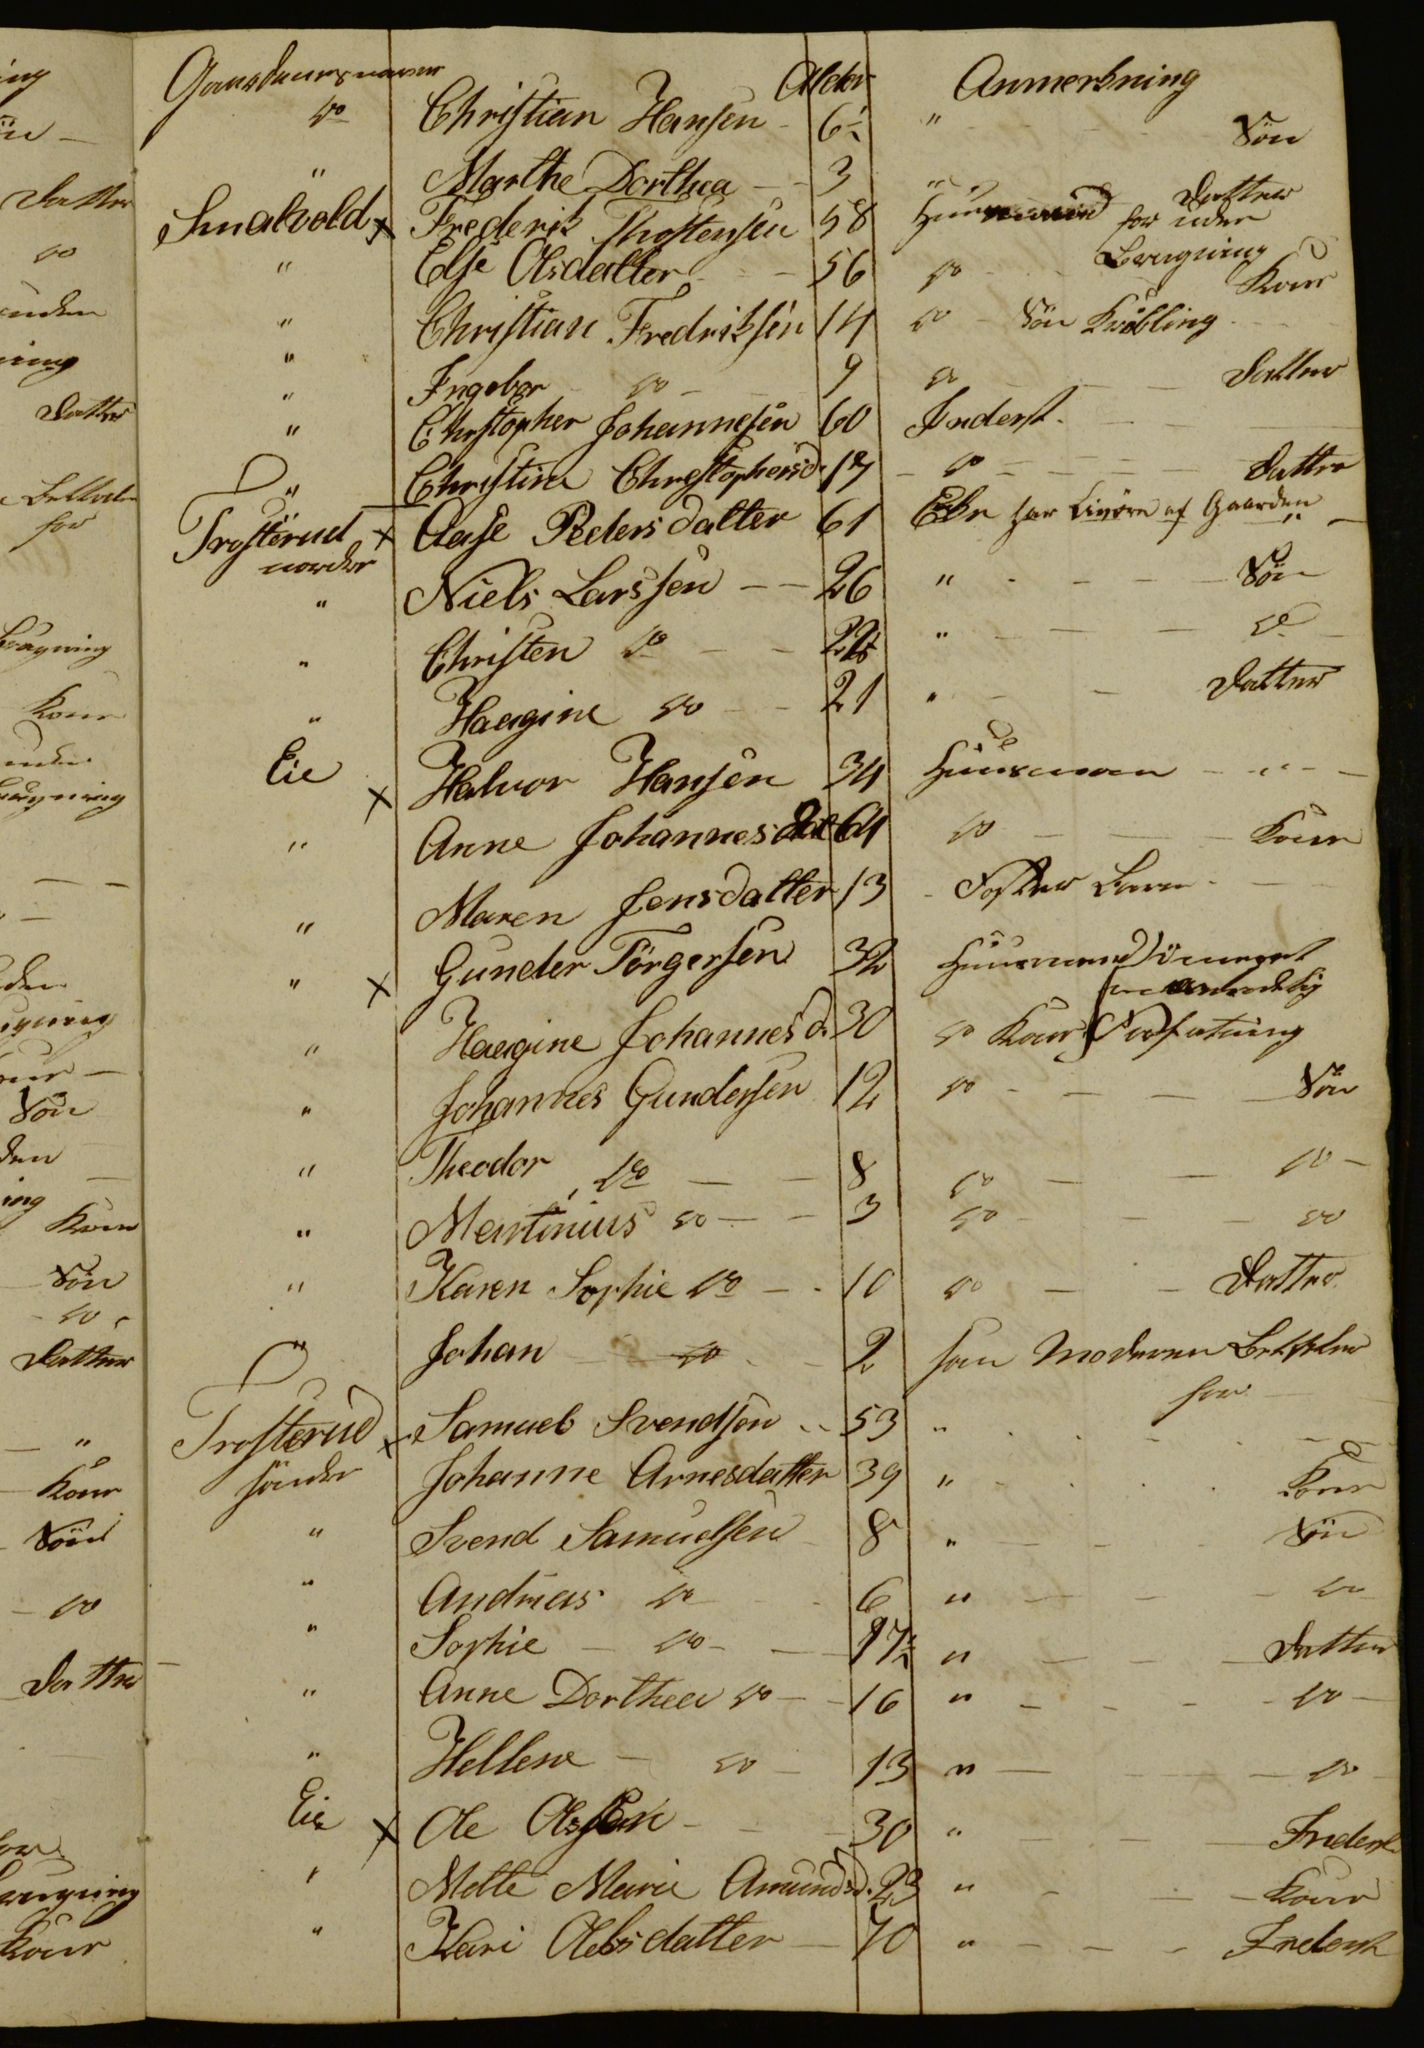 Gaardenesnavn Alder Anmerkning
do Christian Hansen 6½ " Søn
" Marthe Dorthea 3 " Datter
Smalvold x Frederik Thostensen 58 Huusmand for uden Brugning
" Else Olsdatter 56 do Kone
" Christian Fredriksen 14 do Søn Krøbling
" Ingebor do 9 do Datter
" Christopher Johannesen 60 Inderst
" Christine Christophersd. 17 do Datter
Trosterud norder x Aase Pedersdatter 61 Eke har Livøre af Gaarden
" Niels Larssen 26 " Søn
" Christen do 22 " do
" Haagine do 21 " Datter
Eie x Halvor Hansen 34 Huusman "
" Anne Johannesdat 64 do Kone
" Maren Jensdatter 13 Foster Barn
" x Gunder Törgersen 32 Huusmand i meget
" Haagine Johannesd. 30 do Kone Forfatning
" Johannes Gundersen 12 do Søn
" Theodor do 8 do do
" Martinius do 3 do do
" Karen Sophie do 10 do Datter
" Johan do 2 som Moderen Bettler for
Trosterud sönder x Samuel Svendsen 53 "
Johanne Arnesdatter 39 " Kone
" Svend Samuelsen 8 " Søn
" Andreas do 6 " do
" Sophie do 17½ " Datter
" Anne Dorthea do 16 " do
" Hellene do 13 " do
Eie x Ole Olssen 30 " Inderst
" Mette Marie Amundsd. 23 " Kone
" Kari Olesdatter 70 " Inderst